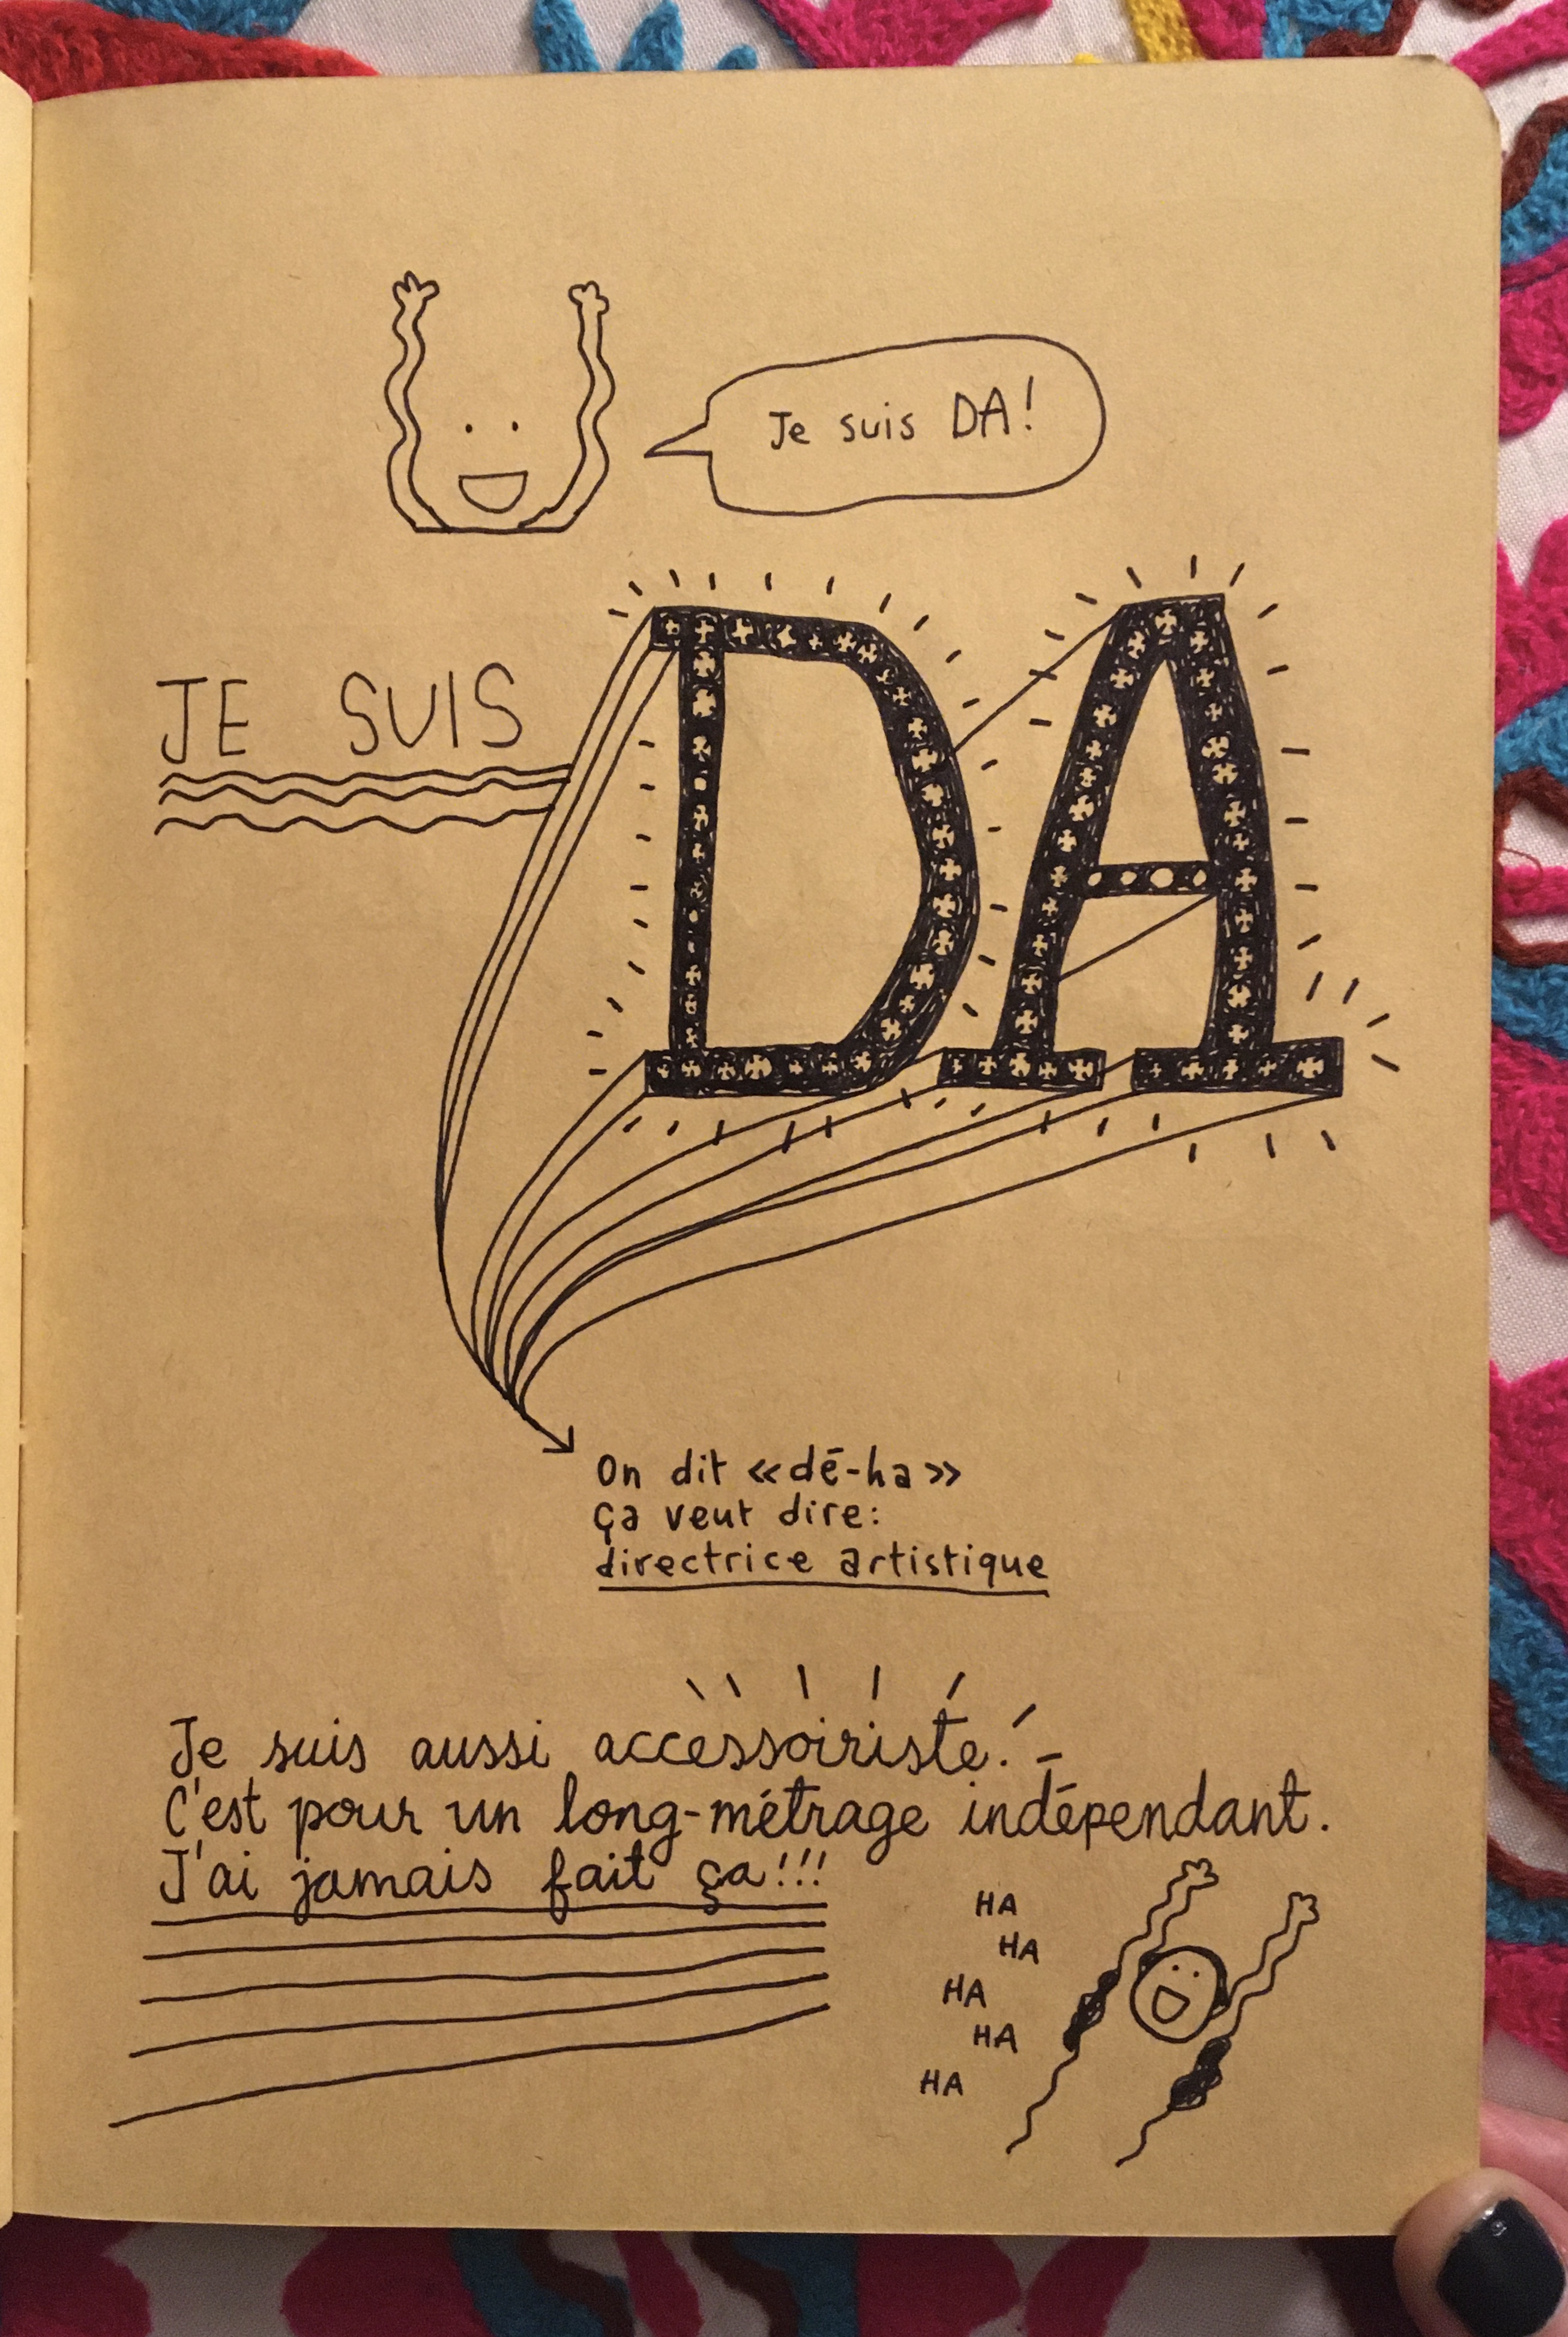 Je suis DA!
JE SUIS DA
On dit «dé-ha»
ça veut dire:
directrice artistique
Je suis aussi accessoiriste!
C'est pour un long-métrage indépendant.
J'ai jamais fait ça!!!
HA
HA
HA
HA
HA